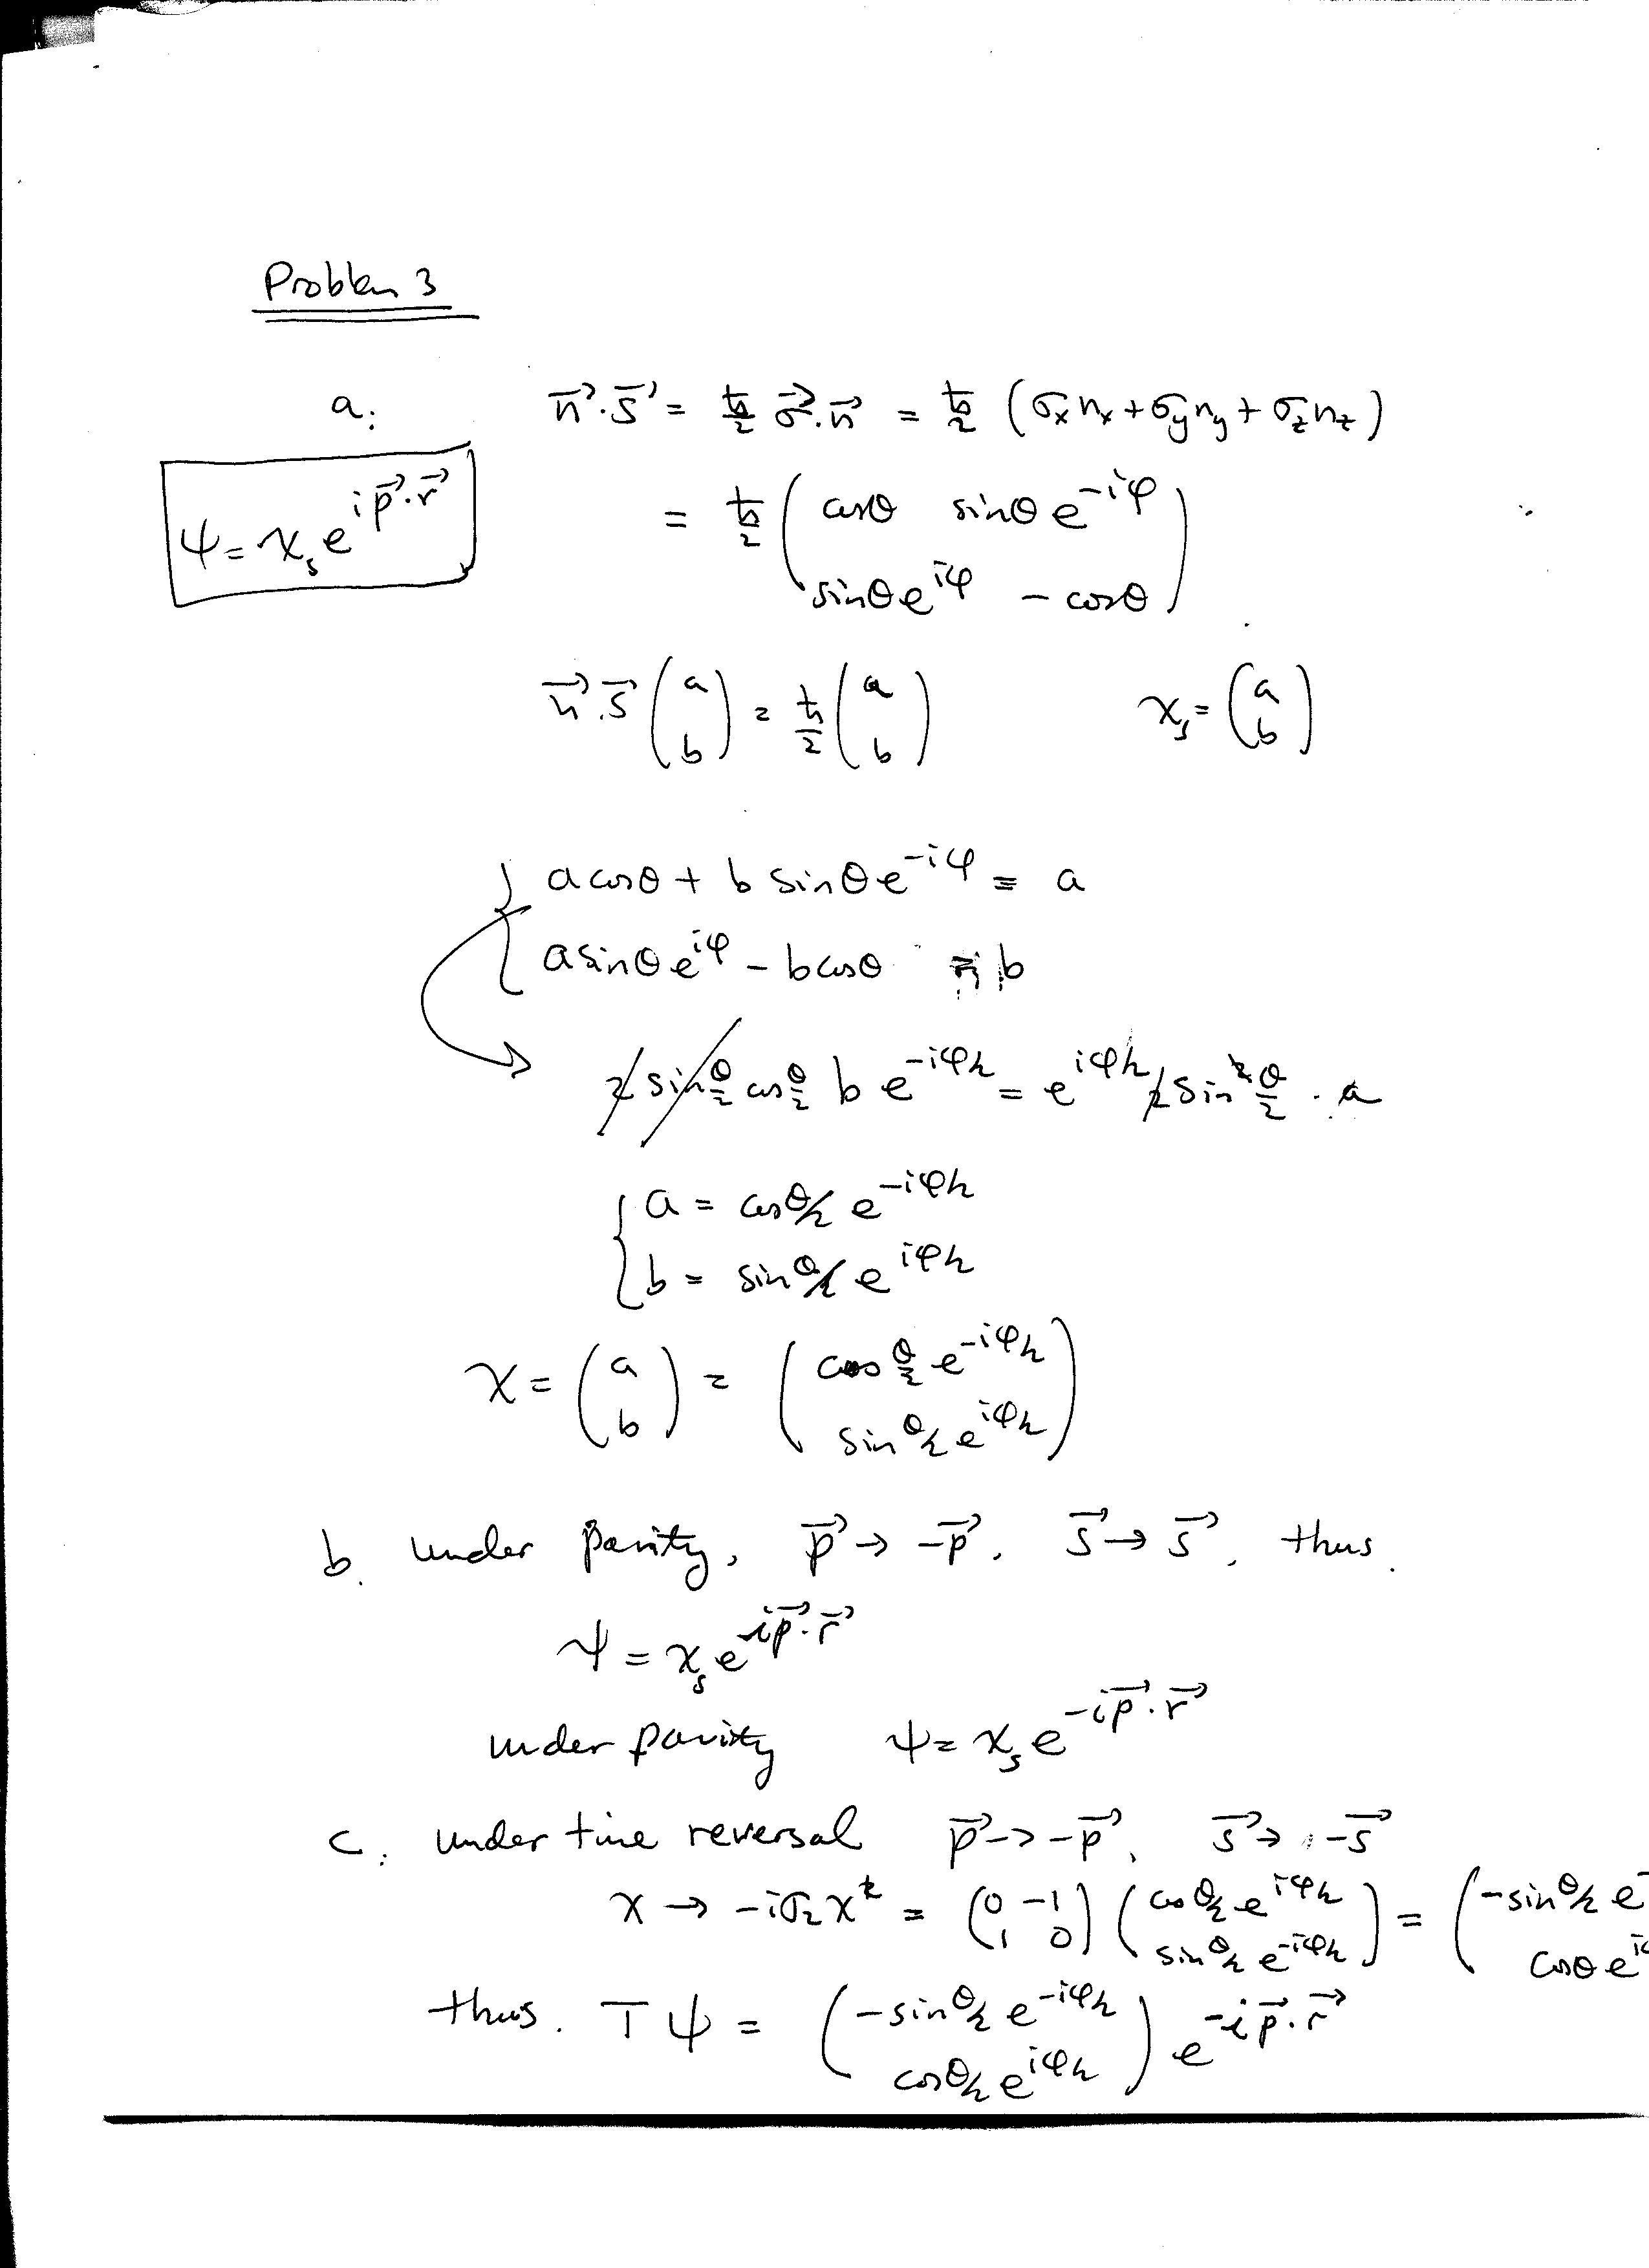 Problem 3
a. n⃗·s⃗ = ħ/2 σ⃗·n⃗ = ħ/2 (σx nx + σy ny + σz nz)
ψ = χs e^{i p⃗·r⃗}
= ħ/2 ( cosθ sinθ e^{-iφ}
sinθ e^{iφ} - cosθ )
n⃗·s⃗ (a b) = ħ/2 (a b) χs = (a b)
{ a cosθ + b sinθ e^{-iφ} = a
a sinθ e^{iφ} - b cosθ = b
2 sin θ/2 cos θ/2 b e^{-iφ/2} = e^{iφ/2} 2 sin² θ/2 · a
{ a = cos θ/2 e^{-iφ/2}
b = sin θ/2 e^{iφ/2}
χ = (a b) = ( cos θ/2 e^{-iφ/2}
sin θ/2 e^{iφ/2} )
b. under parity, p⃗ → -p⃗, s⃗ → s⃗, thus.
ψ = χs e^{i p⃗·r⃗}
under parity ψ = χs e^{-i p⃗·r⃗}
c. under time reversal p⃗ -> -p⃗, s⃗ → -s⃗
χ → -iσ2 χ* = (0 -1 1 0) ( cos θ/2 e^{iφ/2} sin θ/2 e^{-iφ/2} ) = ( -sin θ/2 e cosθ e^{i
thus. Tψ = ( -sin θ/2 e^{-iφ/2} cos θ/2 e^{iφ/2} ) e^{-i p⃗·r⃗}